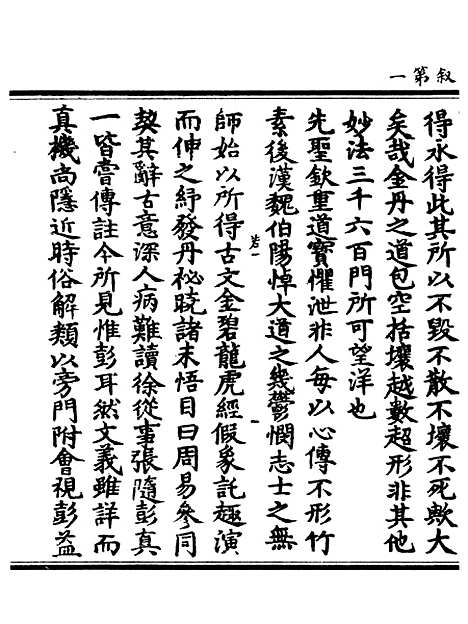 叙第一
得永得此其所以不毀不散不壞不死歟大
矣哉金丹之道包空括壤越數超形非其他
妙法三千六百門所可望洋也
先聖欽重道寶懼泄非人每以心傳不形竹
素後漢魏伯陽悼大道之幾鬱憫志士之無
岩一
一
師始以所得古文金碧龍虎經假象託趣演
而伸之紓發丹祕曉諸未悟目曰周易參同
契其辭古意深人病難讀徐從事張隨彭真
一皆嘗傳註今所見惟彭耳然文義雖詳而
真機尚隱近時俗解類以旁門附會視彭益